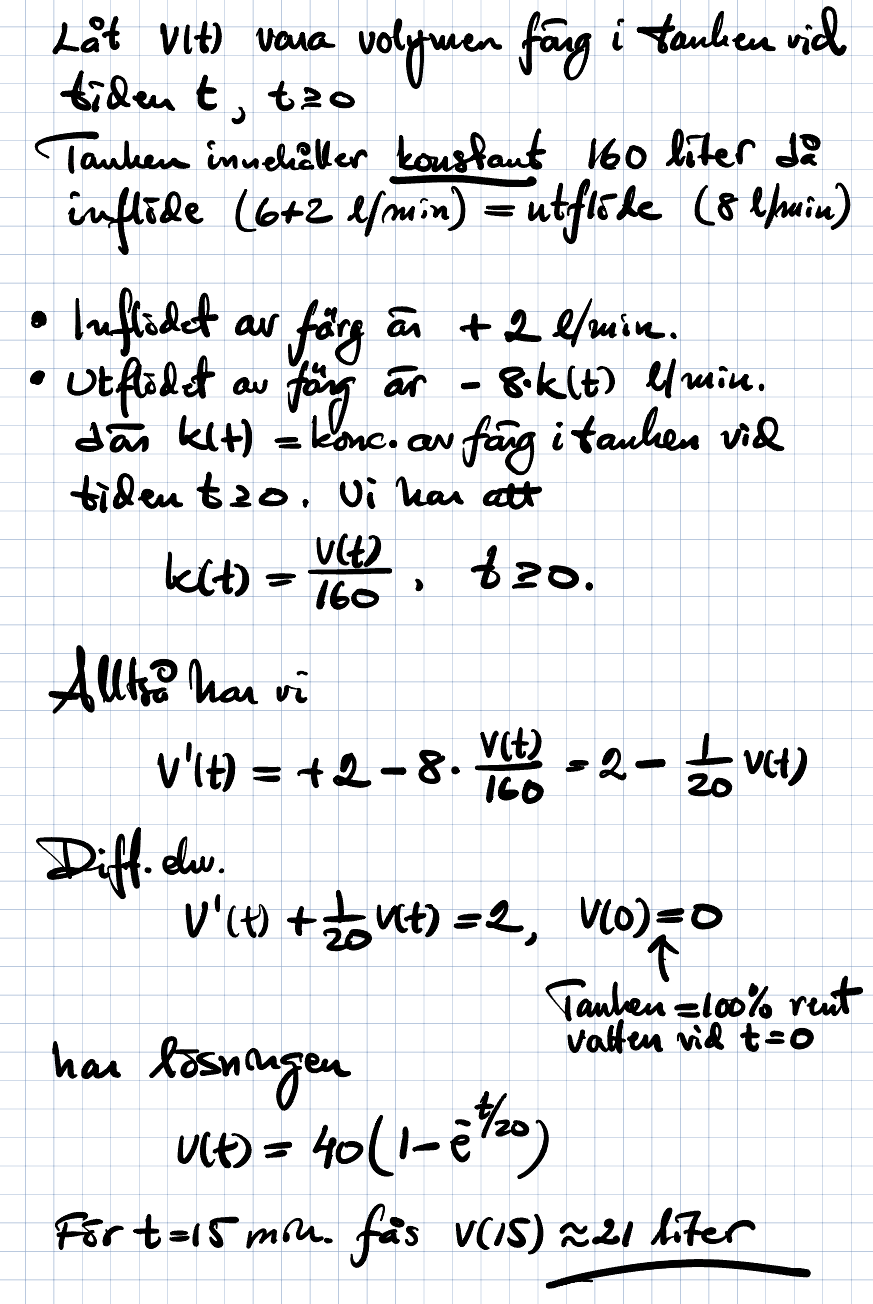 Låt V(t) vara volymen färg i tanken vid
tiden t, t≥0
Tanken innehåller konstant 160 liter då
inflöde (6+2 l/min) = utflöde (8 l/min)
• Inflödet av färg är + 2 l/min.
• Utflödet av färg är - 8·k(t) l/min.
där k(t) = konc. av färg i tanken vid
tiden t≥0. Vi har att
k(t) = V(t)/160, t≥0.
Alltså har vi
V'(t) = +2 - 8· V(t)/160 = 2 - 1/20 V(t)
Diff. ekv.
V'(t) + 1/20 V(t) = 2, V(0)=0
↑
Tanken = 100% rent
vatten vid t=0
har lösningen
V(t) = 40(1 - e^{-t/20})
För t=15 min. fås V(15) ≈ 21 liter